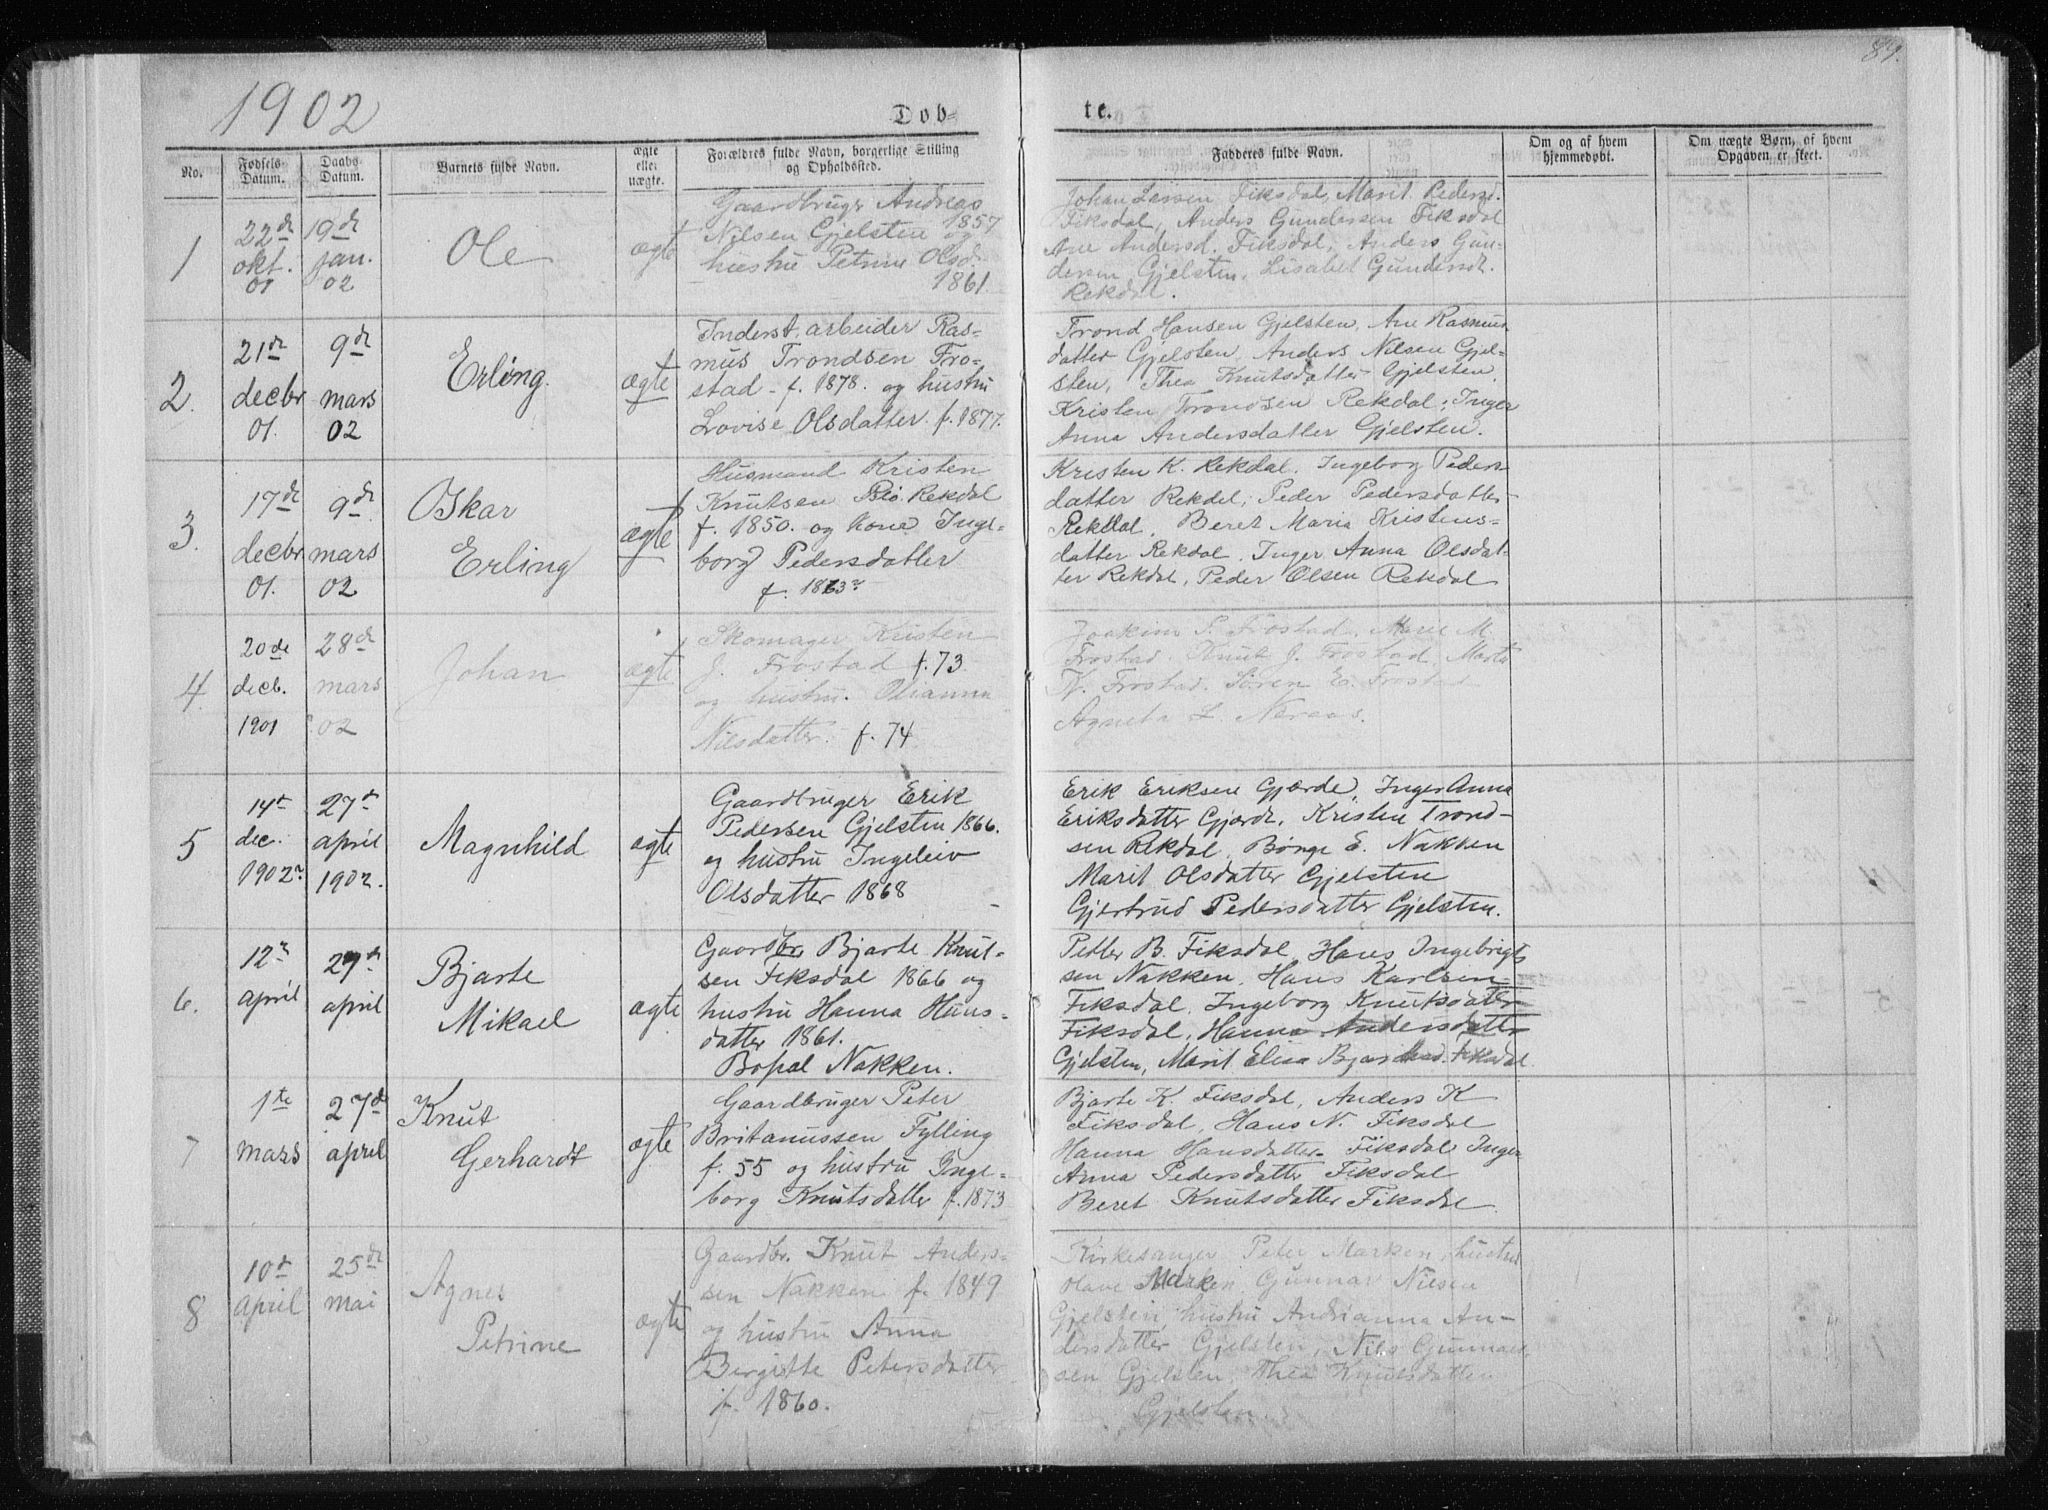 1902
Døb-
te.
No.
Fødsels Datum.
Daabs Datum.
Barnets fulde Navn.
ægte eller uægte.
Forældres fulde Navn, borgerlige Stilling og Opholdssted.
Fadderes fulde Navn.
Om og af hvem hjemmedøbt.
Om uægte Børn, af hvem Opgaven er skeet.
1
22de okt. 01
19de jan. 02
Ole
ægte
Gaardbruger Andreas
Nilsen Gjelsten 1857 og
hustru Petrine Olsd.
1861.
Johan Larsen Fiksdal, Marit Pedersd.
Fiksdal, Anders Gundersen Fiksdal
Ane Andersd. Fiksdal, Anders Gun-
dersen Gjelsten, Lisabet Gundersdt.
Rekdal.
2.
21de decbr 01.
9de mars 02
Erling.
ægte
Inderst, arbeider Ras-
mus Trondsen Fro-
stad - f. 1878. og hustru
Lovise Olsdatter f. 1877.
Trond Hansen Gjelsten, Ane Rasmus
datter Gjelsten, Anders Nilsen Gjel-
sten, Thea Knutsdatter Gjelsten,
Kristen Trondsen Rekdal, Inger
Anna Andersdatter Gjelsten.
3.
17de decbr 01.
9de mars 02
Oskar
Erling
ægte
Husmand Kristen
Knutsen Rekdal
f. 1850. og kone Inge-
borg Pedersdatter
f. 1863
Kristen K. Rekdal. Ingeborg Peders-
datter Rekdal, Peder Pedersdatter
Rekdal, Beret Maria Kristens-
datter Rekdal, Inger Anna Olsdat-
ter Rekdal, Peder Olsen Rekdal
4.
20de decb. 1901
28de mars 02
Johan
ægte
Skomager Kristen
J. Frostad f. 73
og hustru. Olianna
Nilsdatter. f. 74
Joakim S. Frostad, Marie M.
Frostad. Knut J. Frostad, Marta
K. Frostad. Søren E. Frostad
Agneta L. Neraas.
5
14de dec. 1902
27de april 1902.
Magnhild
ægte
Gaardbruger Erik
Pedersen Gjelsten 1866.
og hustru Ingeleiv
Olsdatter 1868
Erik Eriksen Gjærde, Inger Anna
Eriksdatter Gjærde, Kristen Trond-
sen Rekdal, Børge E. Nakken
Marit Olsdatter Gjelsten
Gjertrud Pedersdatter Gjelsten.
6.
12 april
27de april
Bjarte
Mikael
ægte
Gaardbr Bjarte Knut-
sen Fiksdal 1866 og
hustru Hanna Hans-
datter 1861.
Bopæl Nakken.
Petter B. Fiksdal, Hans Ingebrigt
sen Nakken, Hans Karlsen
Fiksdal, Ingeborg Knutsdatter
Fiksdal, Hanna Andersdatter
Gjelsten, Marit Elisa Fiksdal
7
1te mars
27de april
Knut
Gerhardt
ægte
Gaardbruger Peter
Britanussen Fylling
f. 55 og hustru Inge-
borg Knutsdatter f. 1873
Bjarte K. Fiksdal, Anders K
Fiksdal, Hans N. Fiksdal
Hanna Hansdatter Fiksdal Inger
Anna Pedersdatter Fiksdal
Beret Knutsdatter Fiksdal
8
10de april
25de mai
Agnes
Petrine
ægte
Gaardbr. Knut Anders-
sen Nakken f. 1849
og hustru Anna
Bergitte Petersdatter
f. 1860.
Kirkesanger Peter Marken, hustru
Olave Marken, Gunnar Nilsen
Gjelsten, hustru Andrianna An-
dersdatter Gjelsten, Nils Gunnar-
sen Gjelsten, Thea Knutsdatter
Gjelsten